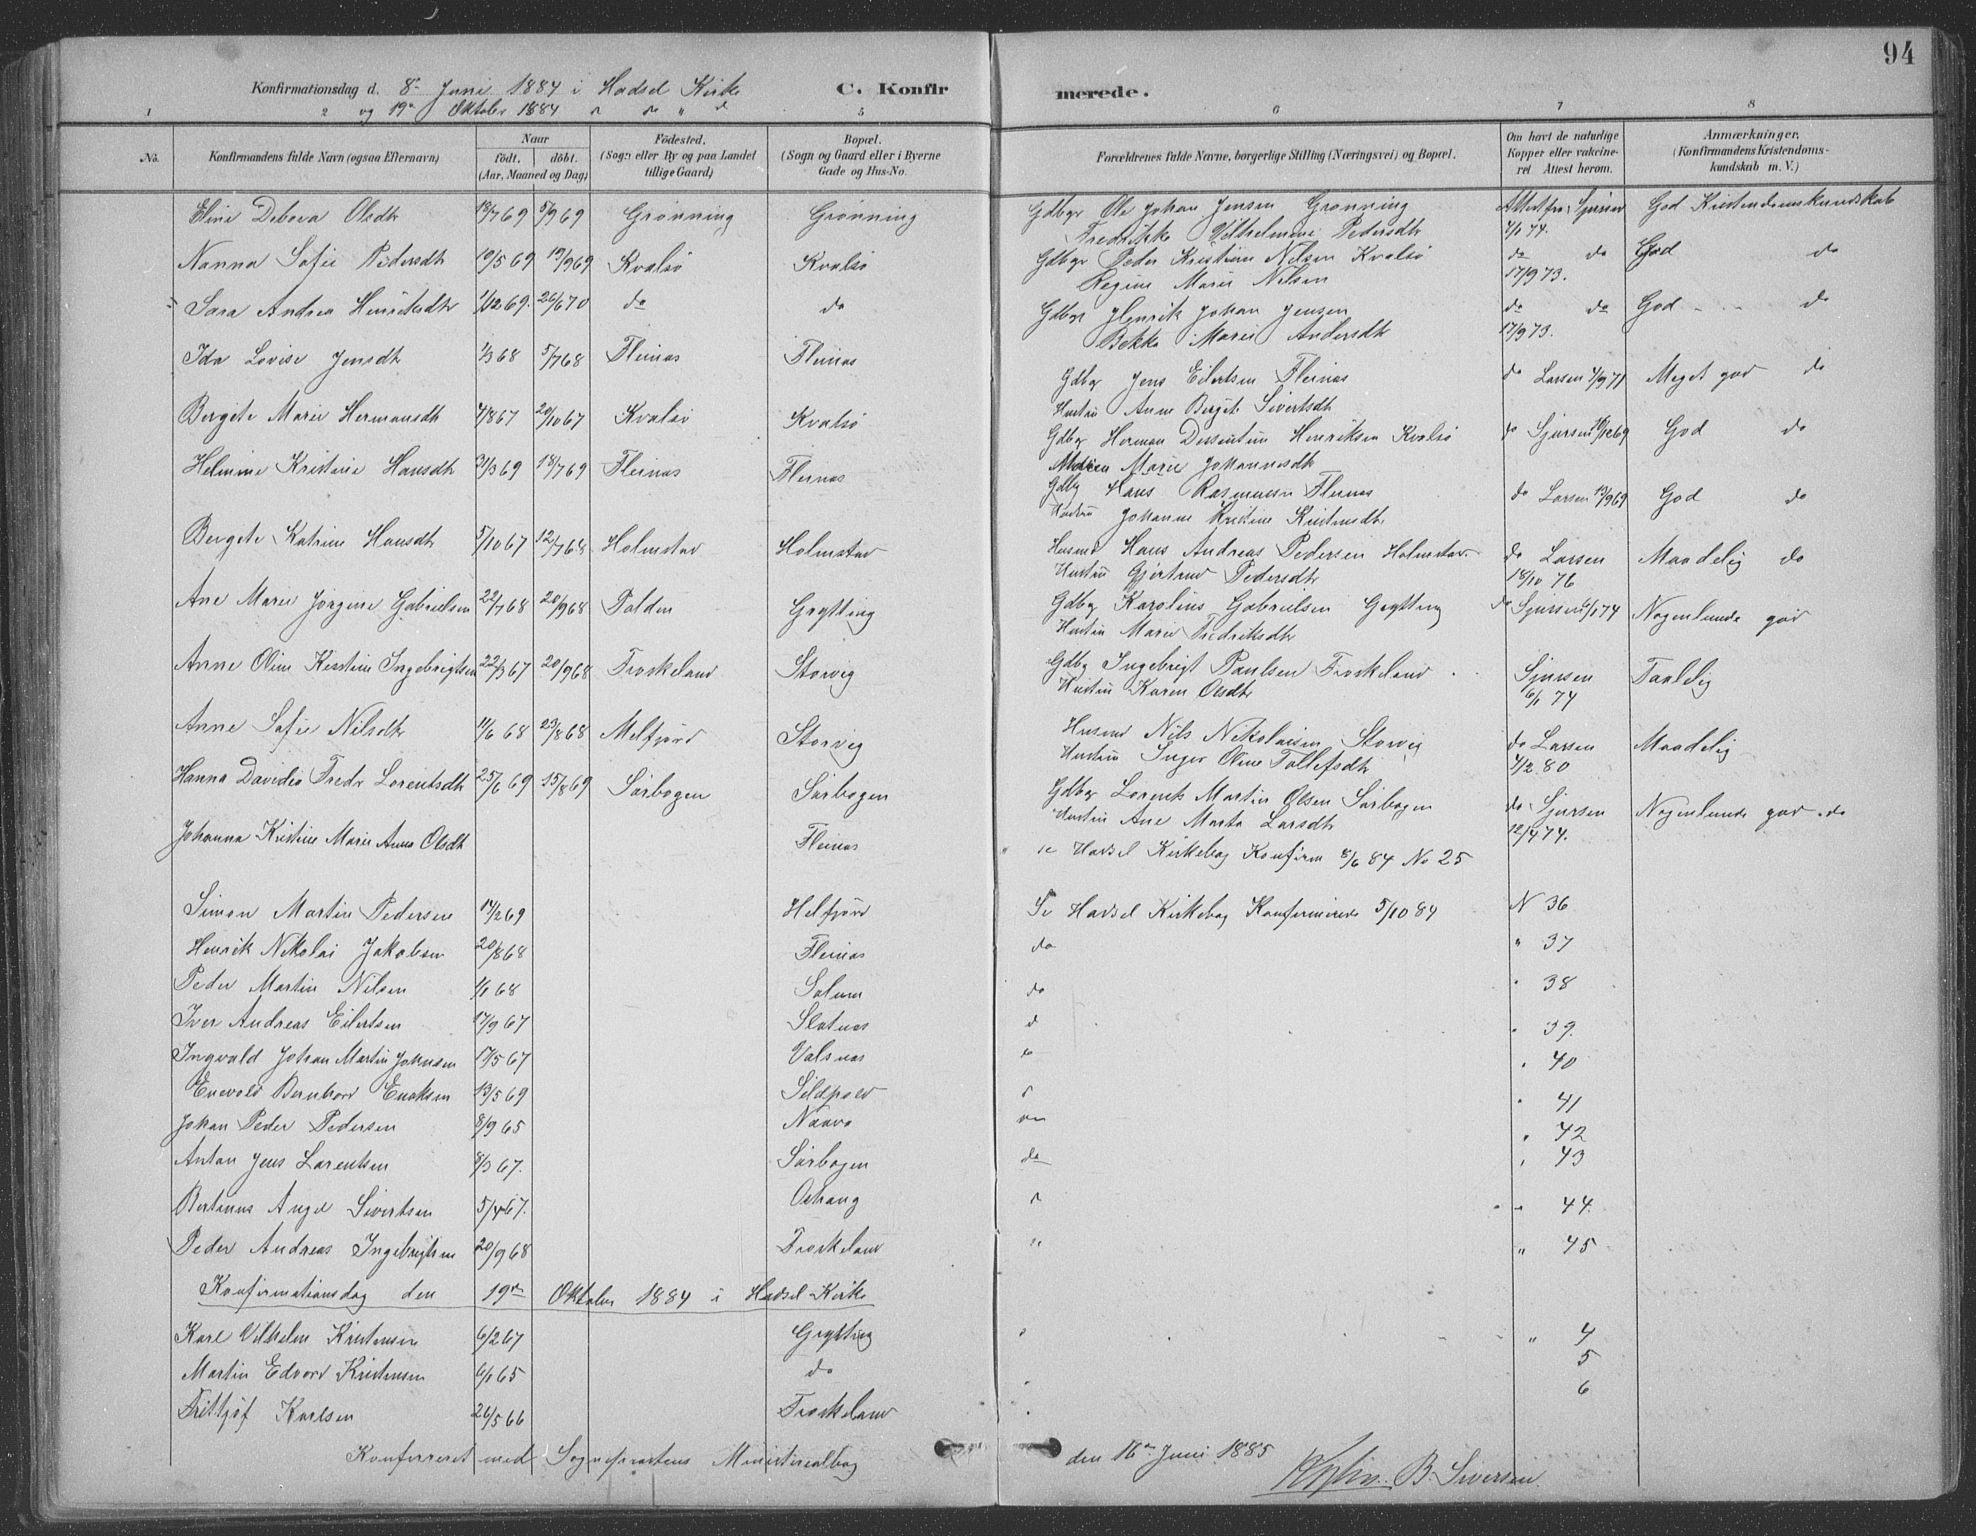 94
Konfirmationsdag d. 8de Juni 1884 i Hadsel Kirke C. Konfirmerede.
og 19de Oktober 1884
1 2 5 6 7 8
No. Konfirmandens fulde Navn (ogsaa Efternavn) Naar født. døbt. (Aar, Maaned og Dag) Fødested. (Sogn eller By og paa Landet tillige Gaard) Bopæl. (Sogn og Gaard eller i Byerne Gade og Hus-No. Forældrenes fulde Navne, borgerlige Stilling (Næringsvei) og Bopæl. Om havt de naturlige Kopper eller vakcineret Attest herom. Anmærkninger. (Konfirmandens Kristendomskundskab m. V.)
Eline Debora Olsdtr 18/7 69 5/9 69 Grønning Grønning Gdbgr Ole Johan Jensen Grønning Attest fra Sjursen God Kristendomskundskab
Fredrikke Vilhelmine Pedersdtr
Nanna Sofie Pedersdtr 10/5 69 19/9 69 Kvalsø Kvalsø Gdbgr Peder Kristian Nilsen Kvalsø do do God do
Regine Marie Nilsen 17/9 73.
Sara Andrea Henriksdtr 1/12 69. 26/6 70 do do Gdbgr Henrik Johan Jensen do do God do
Bekka Marie Andersdtr 17/9 73.
Ida Lovise Jensdtr 1/3 68 5/7 68 Fleinæs Fleinæs Gdbgr Jens Eilertsen Fleinæs do Larsen 4/9 71 Meget god do
Hustru Anne Bergete Sivertsdtr
Bergete Marie Hermansdtr 4/8 67 20/10 67 Kvalsø Kvalsø Gdbgr Herman Henriksen Kvalsø do Sjursen God do
Marie Johannesdtr
Helmine Kristine Hansdtr 31/3 69 18/7 69 Fleinæs Fleinæs Gdbg Hans Rasmussen Fleinæs do Larsen 19/9 69 God do
Hustru Johanne Kristine Kristensdtr
Bergete Katrine Hansdtr 5/10 67 12/7 68 Holmstad Holmstad Husmd Hans Andreas Pedersen Holmstad do Larsen Maadelig do
Hustru Gjertrud Pedersdtr 18/10 76
Ane Marie Jørgine Gabrielsen 22/7 68 20/9 68 Polden Grytting Gdbgr Karolius Gabrielsen Grytting do Sjursen Nogenlunde god
Hustru Marie Fredriksdtr
Anne Oline Kirstine Ingebrigtsen 22/3 67 20/9 68 Froskeland Storvig Gdbg Ingebrigt Paulsen Froskeland Sjursen Taalelig
Hustru Karen Olsdtr 6/1 74
Anne Sofie Nilsdtr 11/6 68 23/8 68 Melfjord Storvig Husmd Nils Nikolaisen Storvig do Larsen Maadelig
Hustru Inger Oline Tollefsdtr 4/2 80
Hanna Davidea Fredr Lorentsdtr 25/6 69 15/8 69 Sørbogen Sørbogen Gdbgr Lorents Martin Olsen Sørbogen do Sjursen Nogenlunde god do
Hustru Ane Marta Larsdtr 12/4 74.
Johanna Kristine Marie Anna Olsdtr Fleinæs se Hadsel Kirkebog Konfirm 8/6 84 No 25
Simon Martin Pedersen 14/2 69 Melfjord Se Hadsel Kirkebog Konfirmerede 5/10 84 N 36
Henrik Nikolai Jakobsen 20/8 68 Fleinæs do " 37
Peder Martin Nilsen 1/1 68 do " 38
Iver Andreas Eilertsen 17/9 67 Slotnæs d " 39.
Ingvald Johan Martin Johnsen 17/5 67 Valsnæs " 40
Enevold Bernhard Enoksen 13/5 69 Sildpold " 41
Johan Peder Pedersen 8/9 65 Naava " 42
Anton Jens Lorentsen 8/3 67. Sørbogen do " 43
Bertinus Angel Sivertsen 5/4 67. " 44.
Peder Andreas Ingebrigtsen 20/9 68 Froskeland " " 45
Konfirmationsdag den 19de Oktober 1884 i Hadsel Kirke
Karl Vilhelm Kristensen 6/2 67 Grytting " 4
Martin Edvard Kristensen 6/1 65 do 5
Frithjof Karlsen 26/5 66 Froskeland 6
Konfereret med Sognepræstens Ministerialbog den 16de Juni 1885
B. Sivertsen